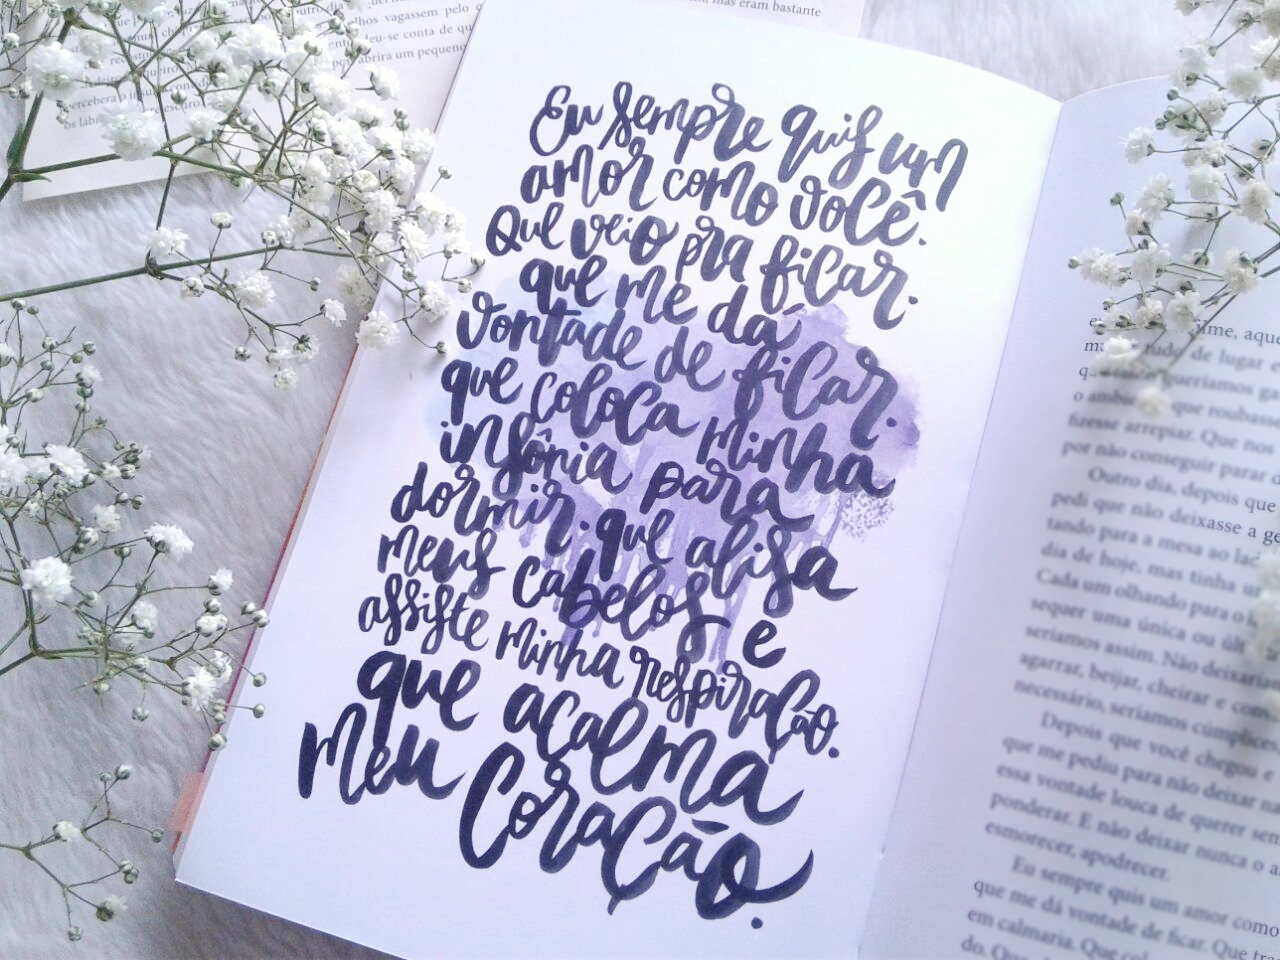 mas eram bastante
lhos vagassem pelo
deu-se conta de
abrira um pequeno
percebera
os lábi
Eu sempre quis um
amor como você.
Que veio pra ficar.
que me dá
vontade de ficar.
que coloca minha
insônia para
dormir. que alisa
meus cabelos e
assiste minha respiração.
que acalma
meu coração.
ume, aque
tudo de lugar e
queríamos ga
o ambie que roubass
fizesse arrepiar. Que nos
por não conseguir parar d
Outro dia, depois que
pedi que não deixasse a ge
tando para a mesa ao lad
dia de hoje, mas tinha u
Cada um olhando para o
sequer uma única ou últ
seríamos assim. Não deixaría
agarrar, beijar, cheirar e con
necessário, seríamos cúmplices
Depois que você chegou e
que me pediu para não deixar na
essa vontade louca de querer sem
ponderar. E não deixar nunca o a
esmorecer, apodrecer.
Eu sempre quis um amor como
que me dá vontade de ficar. Que tra
em calmaria. Que col
do. Que